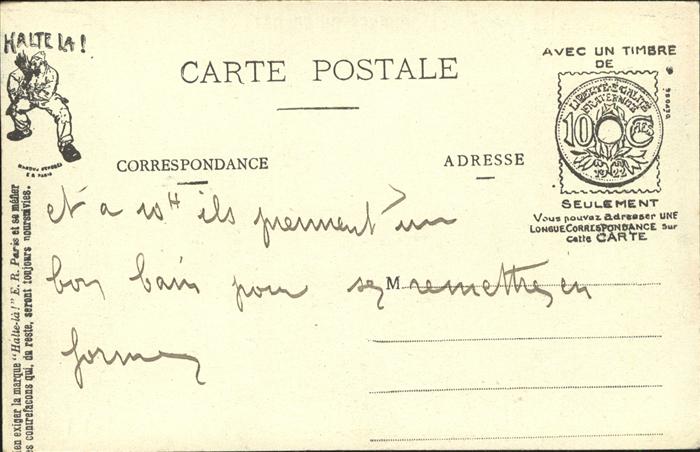 HALTE LÀ!
MARQUE DÉPOSÉE
E R PARIS
CARTE POSTALE
CORRESPONDANCE
ADRESSE
AVEC UN TIMBRE
DE
LIBERTÉ·EGALITÉ
FRATERNITÉ
10 Cmes
1922
DÉPOSÉ
SEULEMENT
Vous pouvez adresser UNE
LONGUE CORRESPONDANCE sur
cette CARTE
et a 10H ils prennent un
bon bain pour se remettre en
forme
M
en exiger la marque "Halte-là!" E. R. Paris et se méfier
s contrefaçons qui, du reste, seront toujours poursuivies.